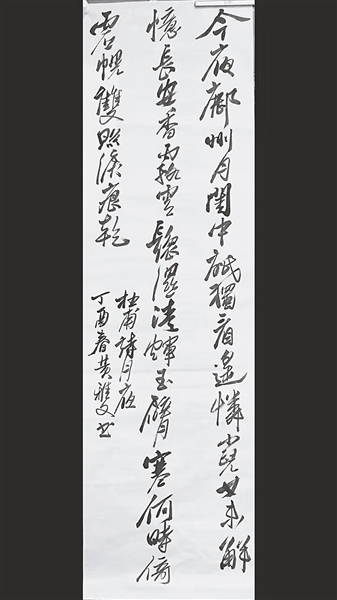 今夜鄜州月閨中祗獨看遙憐小兒女未解
憶長安香霧雲鬟濕清輝玉臂寒何時倚
虛幌雙照淚痕乾
杜甫詩月夜
丁酉春黄雅文书